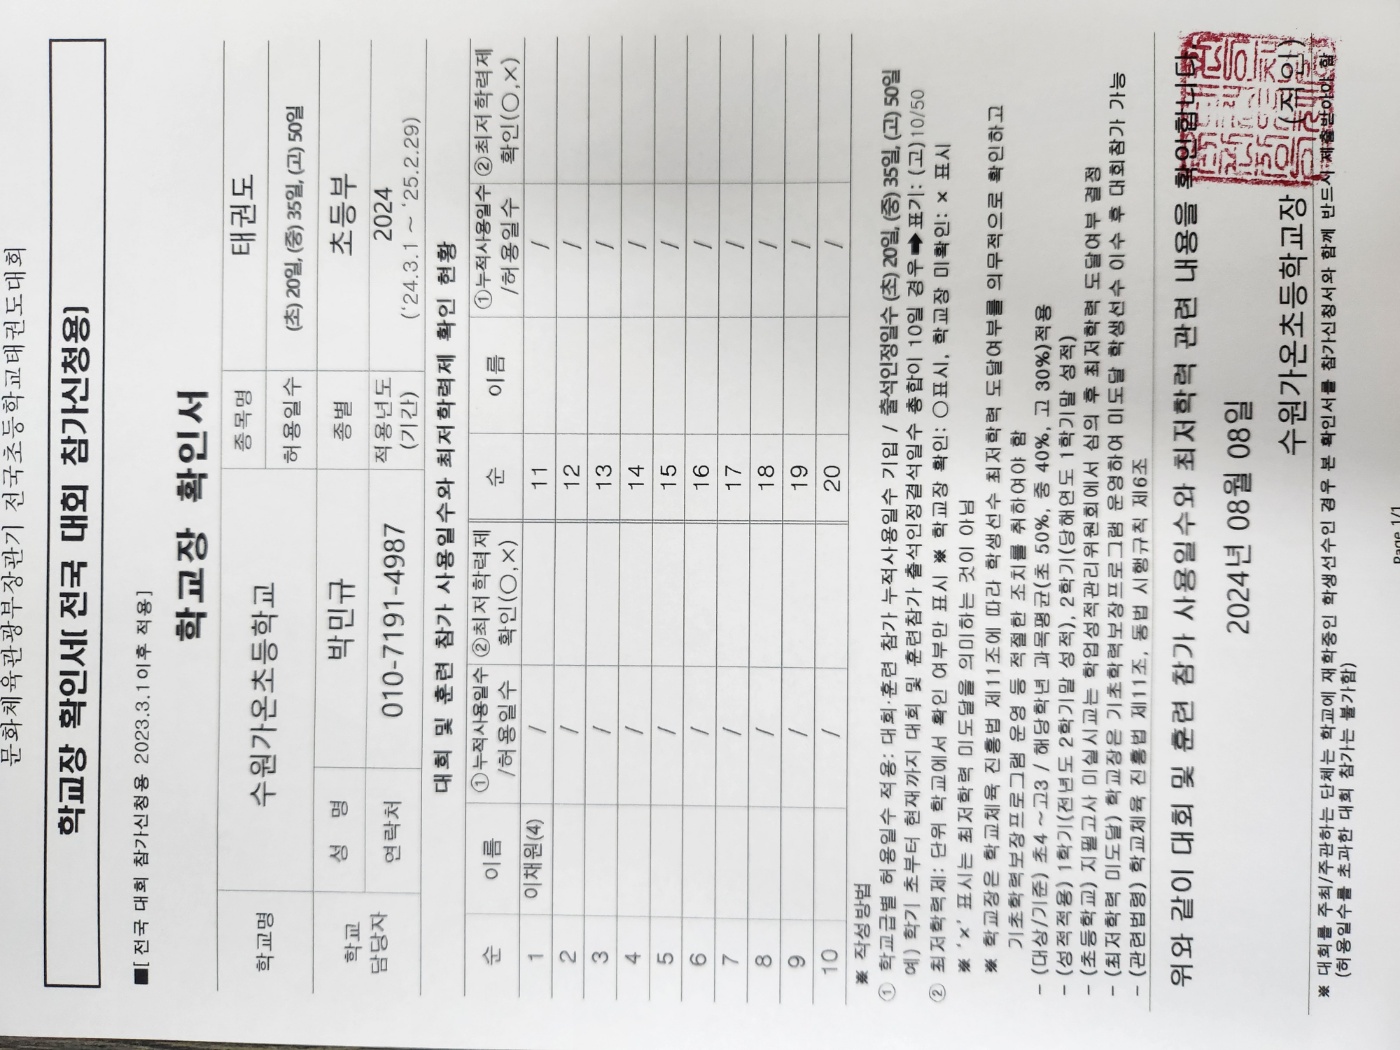 문화체육관광부장관기 전국초등학교태권도대회
학교장 확인서[ 전국 대회 참가신청용]
■[ 전국 대회 참가신청용 2023.3.1이후 적용]
학교장 확인서
학교명 수원가온초등학교 종목명 태권도
허용일수 (초) 20일, (중) 35일, (고) 50일
학교 담당자 성 명 박민규 종별 초등부
연락처 010-7191-4987 적용년도 (기간) 2024 ('24.3.1 ~ '25.2.29)
대회 및 훈련 참가 사용일수와 최저학력제 확인 현황
순 이름 ①누적사용일수 /허용일수 ②최저학력제 확인(○,×) 순 이름 ①누적사용일수 /허용일수 ②최저학력제 확인(○,×)
1 이채원(4) / 11 /
2 / 12 /
3 / 13 /
4 / 14 /
5 / 15 /
6 / 16 /
7 / 17 /
8 / 18 /
9 / 19 /
10 / 20 /
※ 작성방법
① 학교급별 허용일수 적용: 대회·훈련 참가 누적사용일수 기입 / 출석인정일수 (초) 20일, (중) 35일, (고) 50일
예) 학기 초부터 현재까지 대회 및 훈련참가 출석인정결석일수 총합이 10일 경우➡표기: (고)10/50
② 최저학력제: 단위 학교에서 확인 여부만 표시 ※ 학교장 확인: ○표시, 학교장 미확인: × 표시
※ '×' 표시는 최저학력 미도달을 의미하는 것이 아님
※ 학교장은 학교체육 진흥법 제11조에 따라 학생선수 최저학력 도달여부를 의무적으로 확인하고
기초학력보장프로그램 운영 등 적절한 조치를 취하여야 함
- (대상/기준) 초4 ~ 고3 / 해당학년 과목평균(초 50%, 중 40%, 고 30%)적용
- (성적적용) 1학기(전년도 2학기말 성적), 2학기(당해연도 1학기말 성적)
- (초등학교) 지필고사 미실시교는 학업성적관리위원회에서 심의 후 최저학력 도달여부 결정
- (최저학력 미도달) 학교장은 기초학력보장프로그램 운영하여 미도달 학생선수 이수 후 대회참가 가능
- (관련법령) 학교체육 진흥법 제11조, 동법 시행규칙 제6조
위와 같이 대회 및 훈련 참가 사용일수와 최저학력 관련 내용을 확인합니다.
2024년 08월 08일
수원가온초등학교장 (직인)
※ 대회를 주최/주관하는 단체는 학교에 재학중인 학생선수인 경우 본 확인서를 참가신청서와 함께 반드시 제출받아야 함
(허용일수를 초과한 대회 참가는 불가함)
Page 1/1